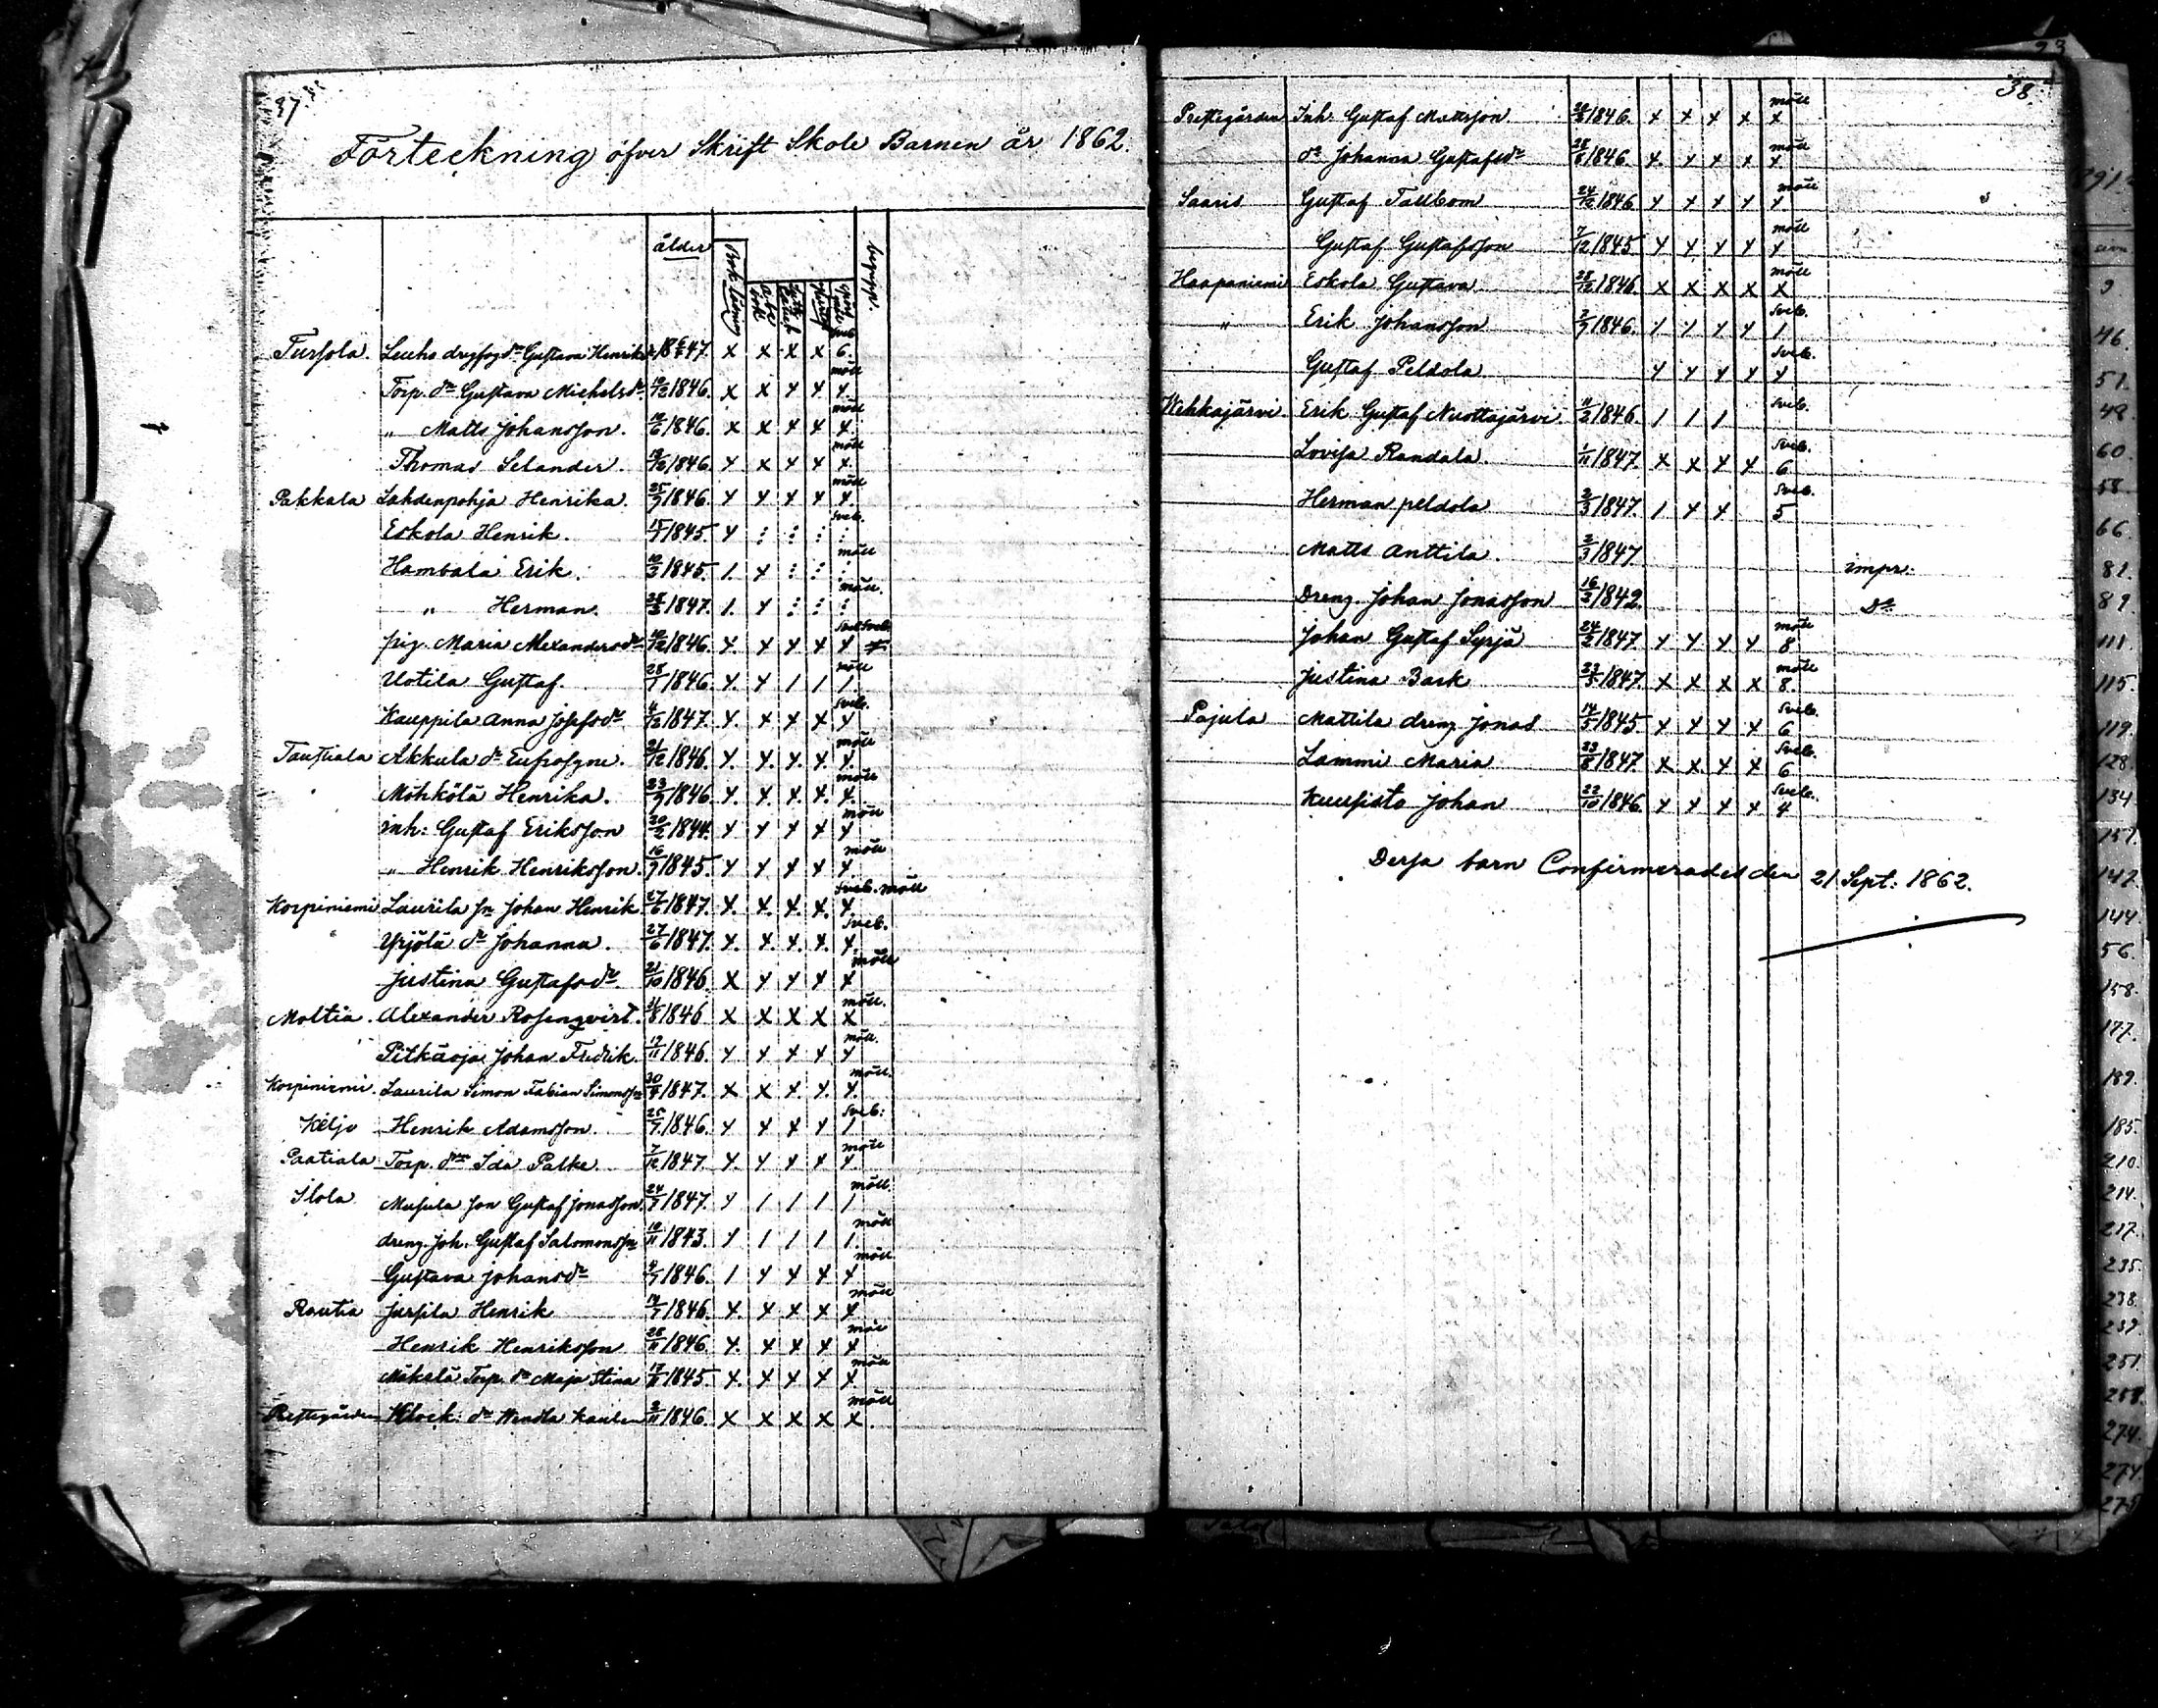 37.
Förteckning öfver Skrift Skole Barnen år 1862.
ålder
Bok läsning
Tursola. Leuho drgsog dr Gustava Henriksdr 1847. x x x x 6. sveb.
Torp. dr Gustava Michelsdr 10/12 1846. x x x x x. möll
„ Matts Johansson. 12/6 1846. x x x x x. möll
Thomas Selander. 1846. x x x x x. möll
Pakkala Lahdenpohja Henrika. 25/9 1846. x x x x x. möll
Eskola Henrik. 15/7 1845. x : : : : sveb.
Hambala Erik. 10/3 1845. 1. x : : : möll
„ Herman. 28/3 1847. 1. x : : : möll.
pig. Maria Alexandersdr 1846. x. x x x x sveb.
Uotila Gustaf. 28/7 1846. x. x / / / möll
Kauppila Anna Josefsdr 4/12 1847. x. x x x x sveb.
Taustiala Akkula dr Eufrosyne. 21/12 1846. x. x. x. x. x. möll
Möhkölä Henrika. 23/9 1846. x. x. x. x. x. möll
inh: Gustaf Eriksson 20/2 1844. x x x x x möll
„ Henrik Henriksson. 16/9 1845. x x x x x. möll
Korpiniemi Laurila sn Johan Henrik. 27/6 1847. x. x. x. x. x. sveb. möll
Yrjölä dr Johanna. 27/6 1847. x. x. x. x. x. sveb.
Justina Gustafsdr. 21/10 1846. x x x x x möll
Moltia. Alexander Rosenqvist. 31/8 1846 x x x x x möll.
Pitkäoja Johan Fredrik. 19/11 1846. x x x x x möll.
Korpiniemi. Laurila Simon Fabian Simonssn 30/4 1847. x x x. x. x. möll.
Keljo Henrik Adamsson. 25/7 1846. x x x x / sveb:
Paatiala Torp. dr Ida Palke 7/12 1847. x. x x x x. möll
Ilola Musula son Gustaf Jonasson. 24/7 1847. x / / / / möll.
dreng. Joh. Gustaf Salomonssn 10/11 1843. x / / / /. möll
Gustava Johansdr 4/7 1846. / x x x x möll
Rautia Jussila Henrik 14/7 1846. x. x x x x möll
Henrik Henriksson 28/11 1846. x. x x x x möll
Mäkelä Torp. dr Maja Stina 1845. x. x x x x möll
Prestegården Klock. dr Wendla Kaulen 3/11 1846. x x x x x. möll
38.
Prestegården Inh. Gustaf Mattsson 1846. x x x x x möll
dr Johanna Gustafsdr 28/8 1846. x. x x x x möll
Saaris Gustaf Tallbom 24/12 1846 x x x x x möll
Gustaf Gustafsson 7/12 1845 x x x x x möll
Haapaniemi Eskola Gustava 28/12 1846. x x x x x möll
„ Erik Johansson 2/9 1846. / / x x / sveb.
Gustaf Peldola. x x x x x sveb.
Wehkajärvi. Erik Gustaf Nuottajärvi. 11/2 1846. / / / sveb.
Lovisa Randala. 1/11 1847. x x x x 6 sveb.
Herman peldola 2/3 1847. / x x 5 sveb.
Matts Anttila. 2/3 1847. impr.
Dreng. Johan Jonasson 16/2 1842. Do.
Johan Gustaf Syrjä 24/3 1847. x x x x 8 möll
Justina Bark 23/5 1847. x x x x 8. möll
Pajula Mattila dreng Jonas 14/5 1845. x x x x 6 sveb.
Lammi Maria 23/8 1847. x x x x 6 sveb.
Kuusisto Johan 22/10 1846. x x x x 4 sveb.
Dessa barn Confirmerades den 21 Sept: 1862.
46.
51.
48.
60.
58.
66.
81.
89.
111.
115.
119.
128.
134
157.
142.
144.
56.
158.
177.
189.
185.
210.
214.
217.
235.
238.
239.
251
258.
274.
274.